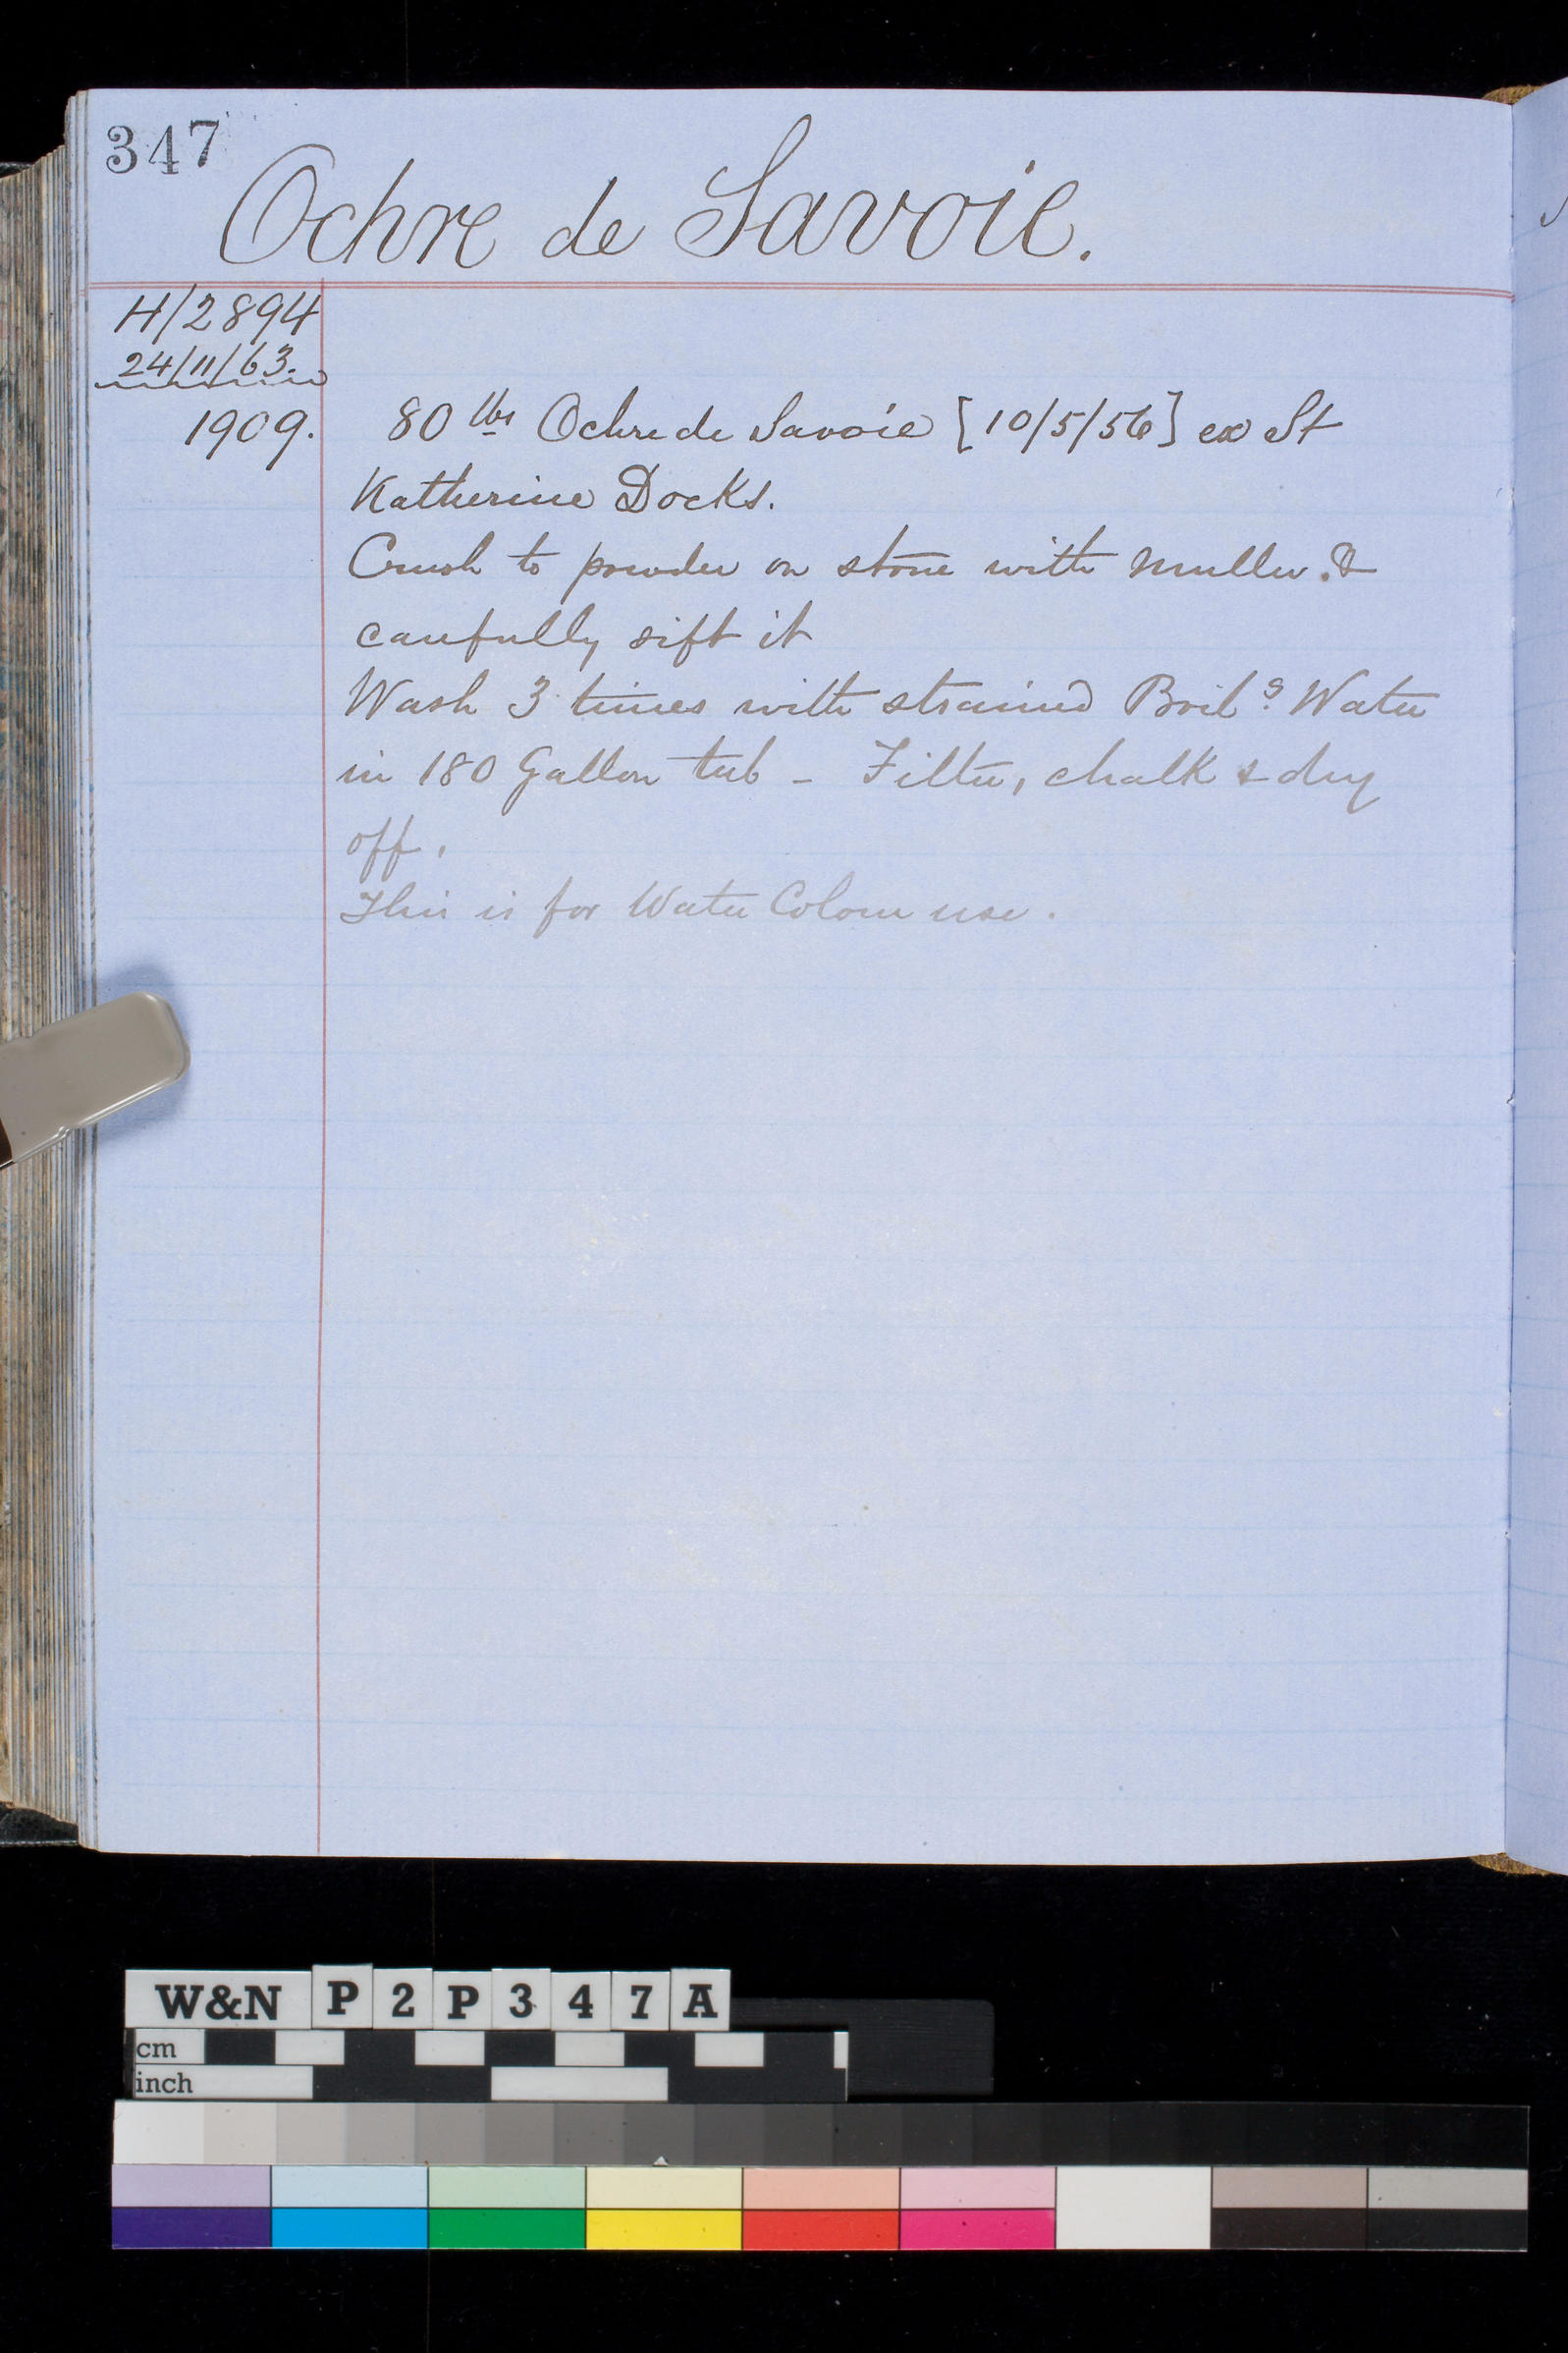 347
Ochre de Savoie.
H/2894
24/11/63.
1909.
80 lbs Ochre de Savoie [10/5/56] ex St
Katherine Docks.
Crush to powder on stone with Muller. &
carefully sift it
Wash 3 times with strained Boilg Water
in 180 Gallon tub - Filter, chalk & dry
off.
This is for Water Colour use.
W&N P2P347A
cm
inch